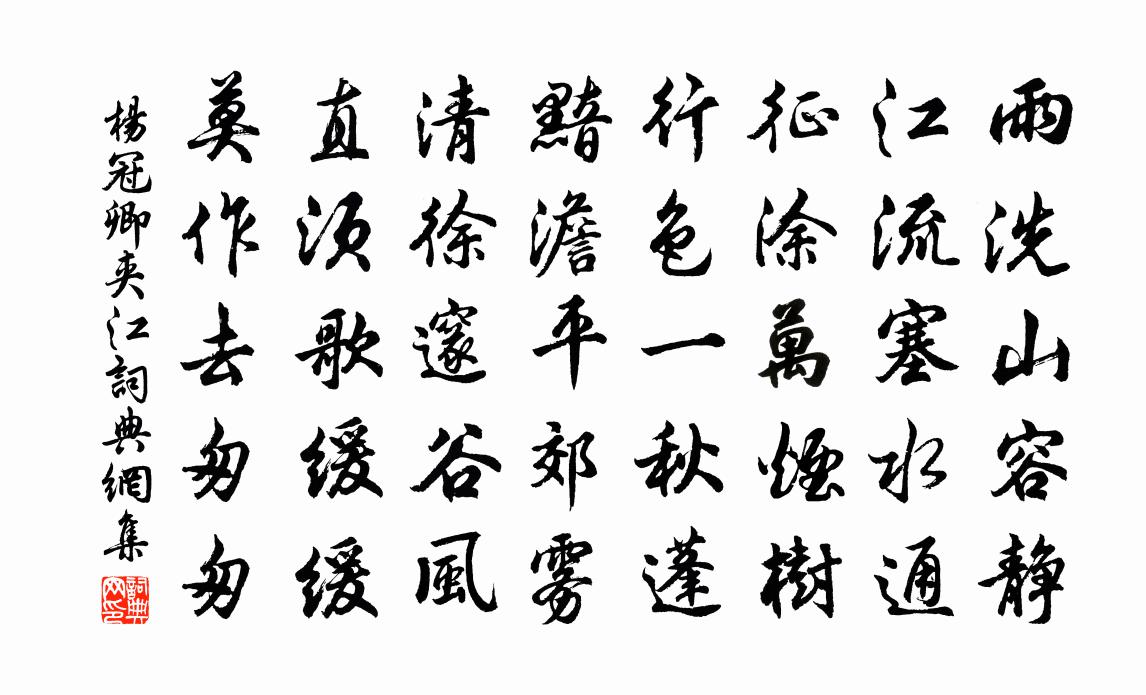 雨洗山容靜
江流塞水通
征除萬煙樹
行色一秋蓬
黯澹平郊雾
清徐邃谷風
直須歌緩緩
莫作去匆匆
楊冠卿夾江詞典網集
詞典网印